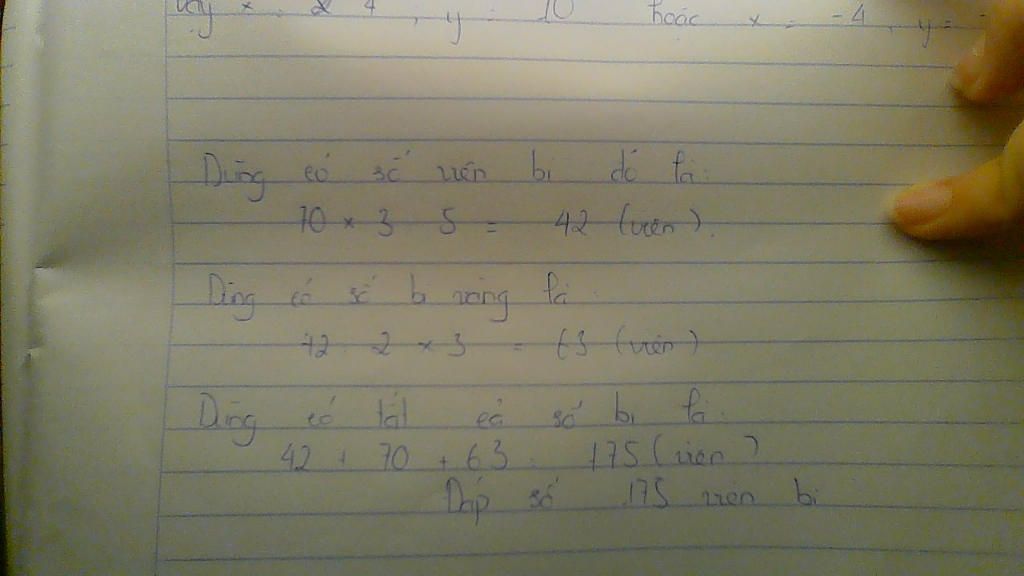 x = 4, y = 10 hoặc x = -4, y =
Dũng có số viên bi đỏ là:
70 x 3 5 = 42 (viên).
Dũng có số bi vàng là:
42 : 2 x 3 = 63 (viên)
Dũng có tất cả số bi là:
42 + 70 + 63 = 175 (viên)
Đáp số 175 viên bi